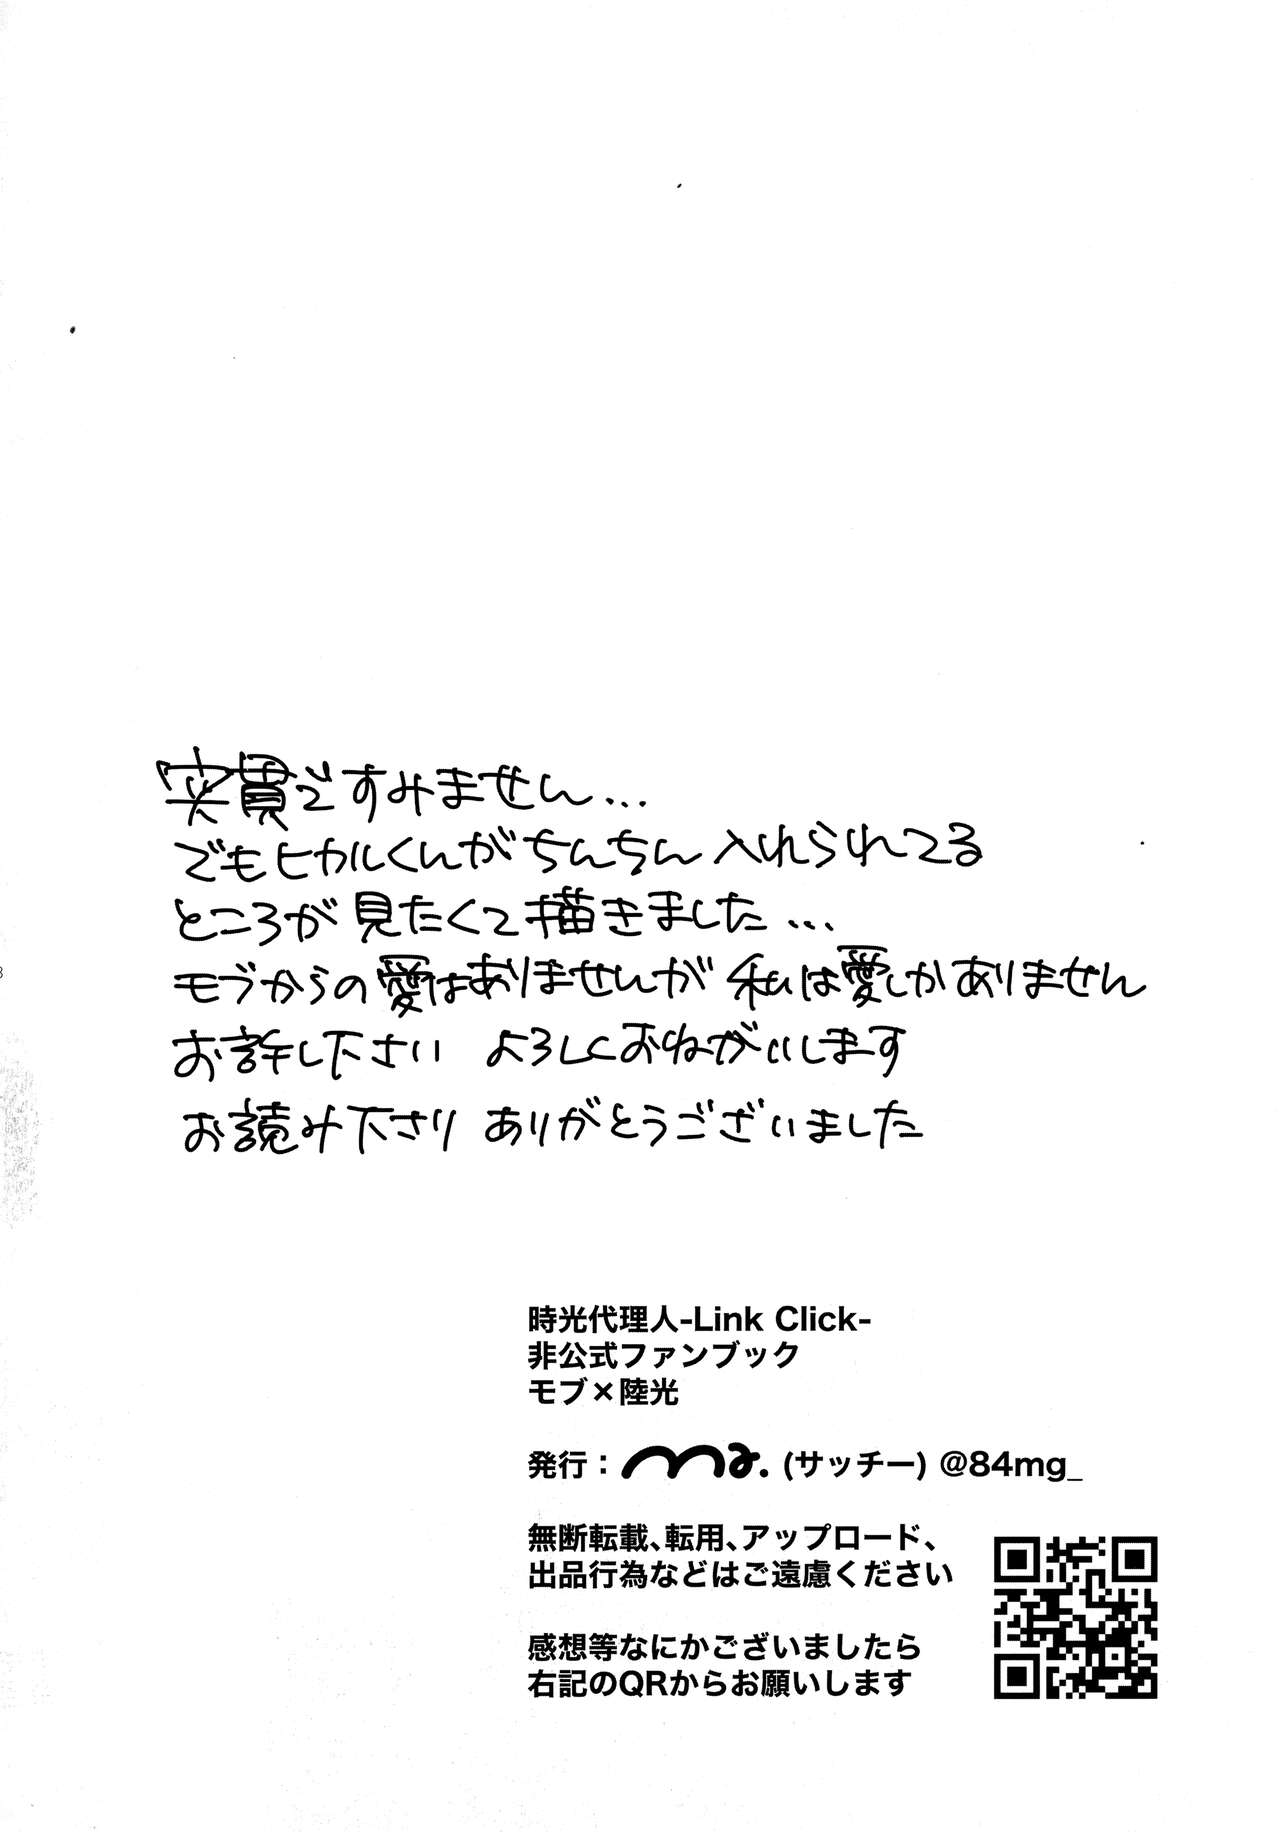 突貫ですみません...
でもヒカルくんがちんちん入れられてる
ところが見たくて描きました...
モブからの愛はありませんが 私は愛しかありません
お許し下さい よろしくおねがいします
お読み下さり ありがとうございました
時光代理人-Link Click-
非公式ファンブック
モブ×陸光
発行：mg. (サッチー) @84mg_
無断転載、転用、アップロード、
出品行為などはご遠慮ください
感想等なにかございましたら
右記のQRからお願いします